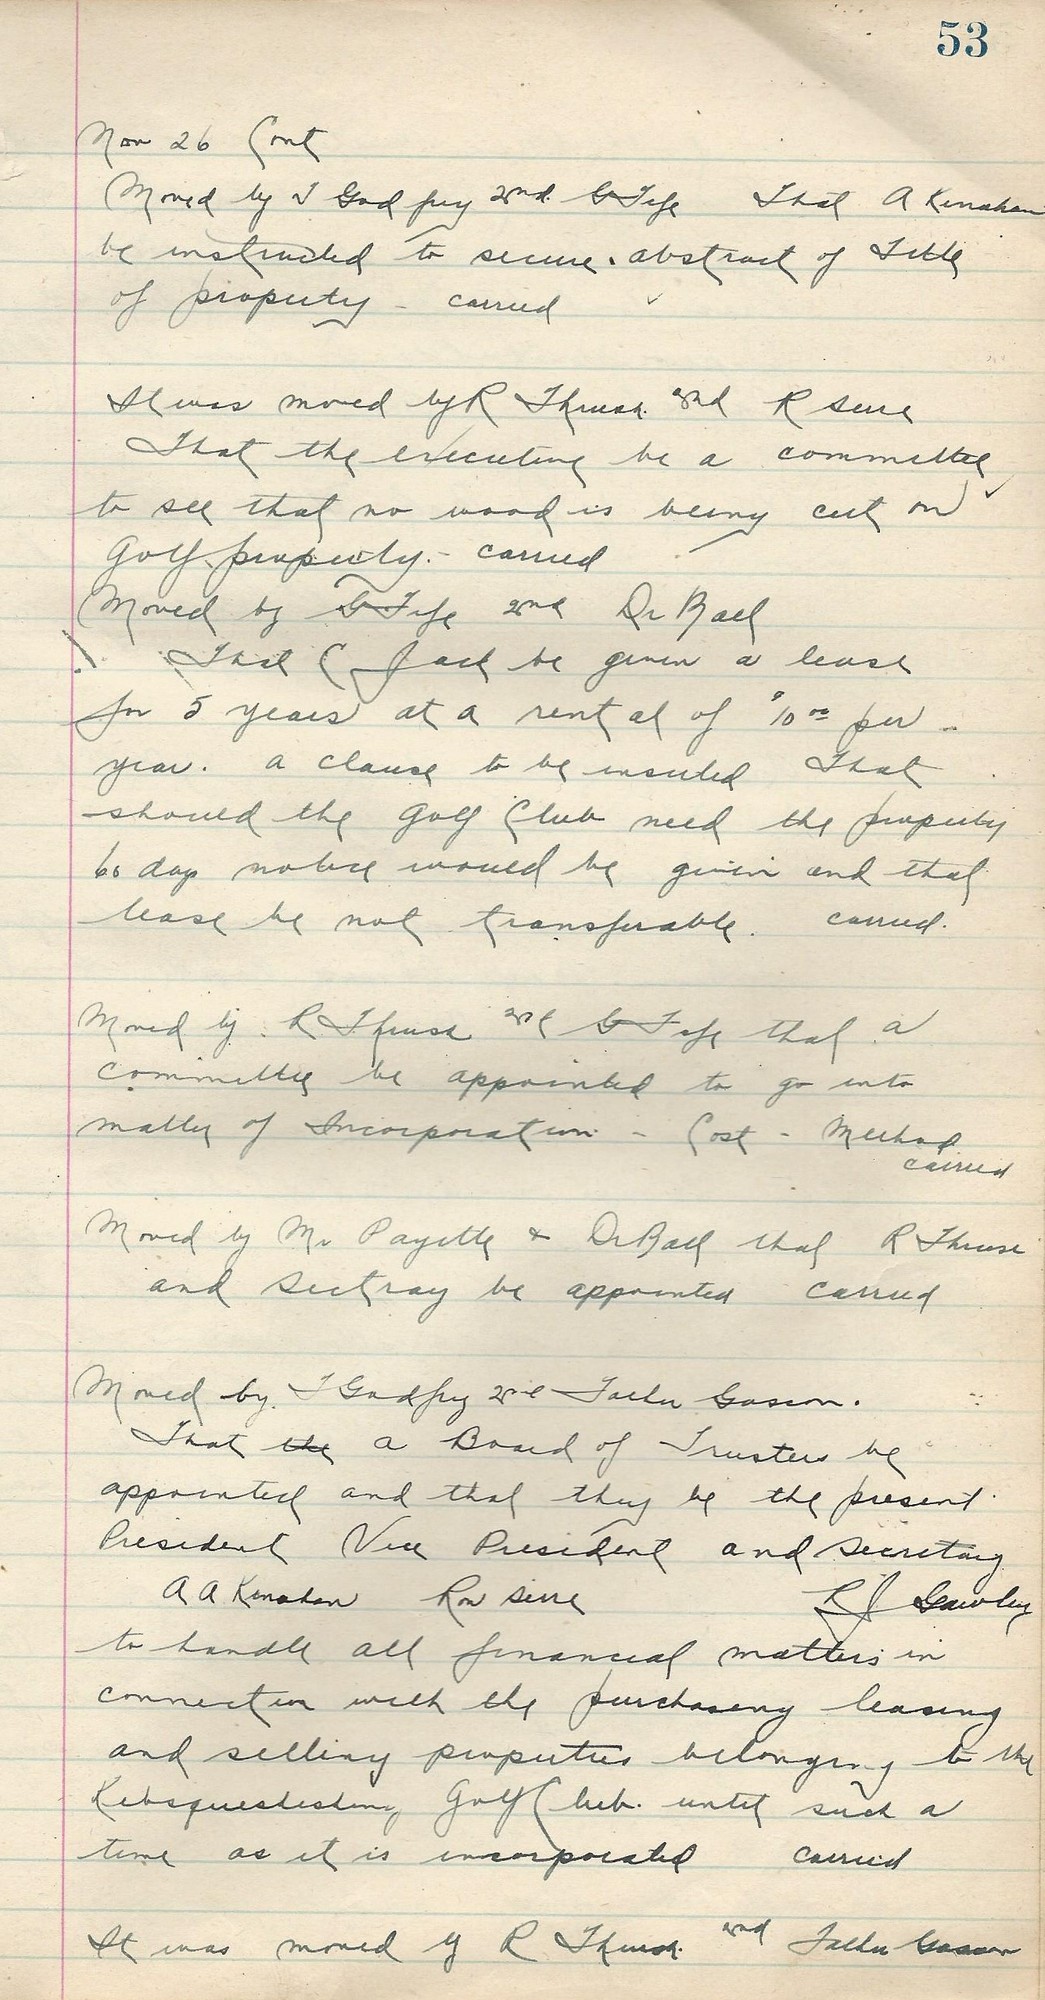 53
Nov 26 Cont
Moved by T Godfrey 2nd. G Fife That A Kenahan
be instructed to secure abstract of Title
of property - carried
It was moved by R Thrush 2nd R Serre
That the executive be a committee
to see that no wood is being cut on
Golf property. - carried
Moved by G Fife 2nd Dr Ball
That C Jack be given a lease
for 5 years at a rental of $10 00 per
year. a clause to be inserted That
should the Golf Club need the property
60 days notice would be given and that
lease be not transferable. carried.
Moved by R Thrush 2nd G Fife that a
committee be appointed to go into
matter of Incorporation - Cost - Method
carried
Moved by Mr Payette & Dr Ball that R Thrush
and Sectray be appointed carried
Moved by T Godfrey 2nd Father Gascon.
That the a Board of Trustees be
appointed and that they be the present
President Vice President and Secretary
A A Kenahan Ron Serre R J Gawley
to handle all financial matters in
connection with the purchasing leasing
and selling properties belonging to the
Golf Club. until such a
time as it is incorporated carried
It was moved by R Thrush 2nd Father Gascon